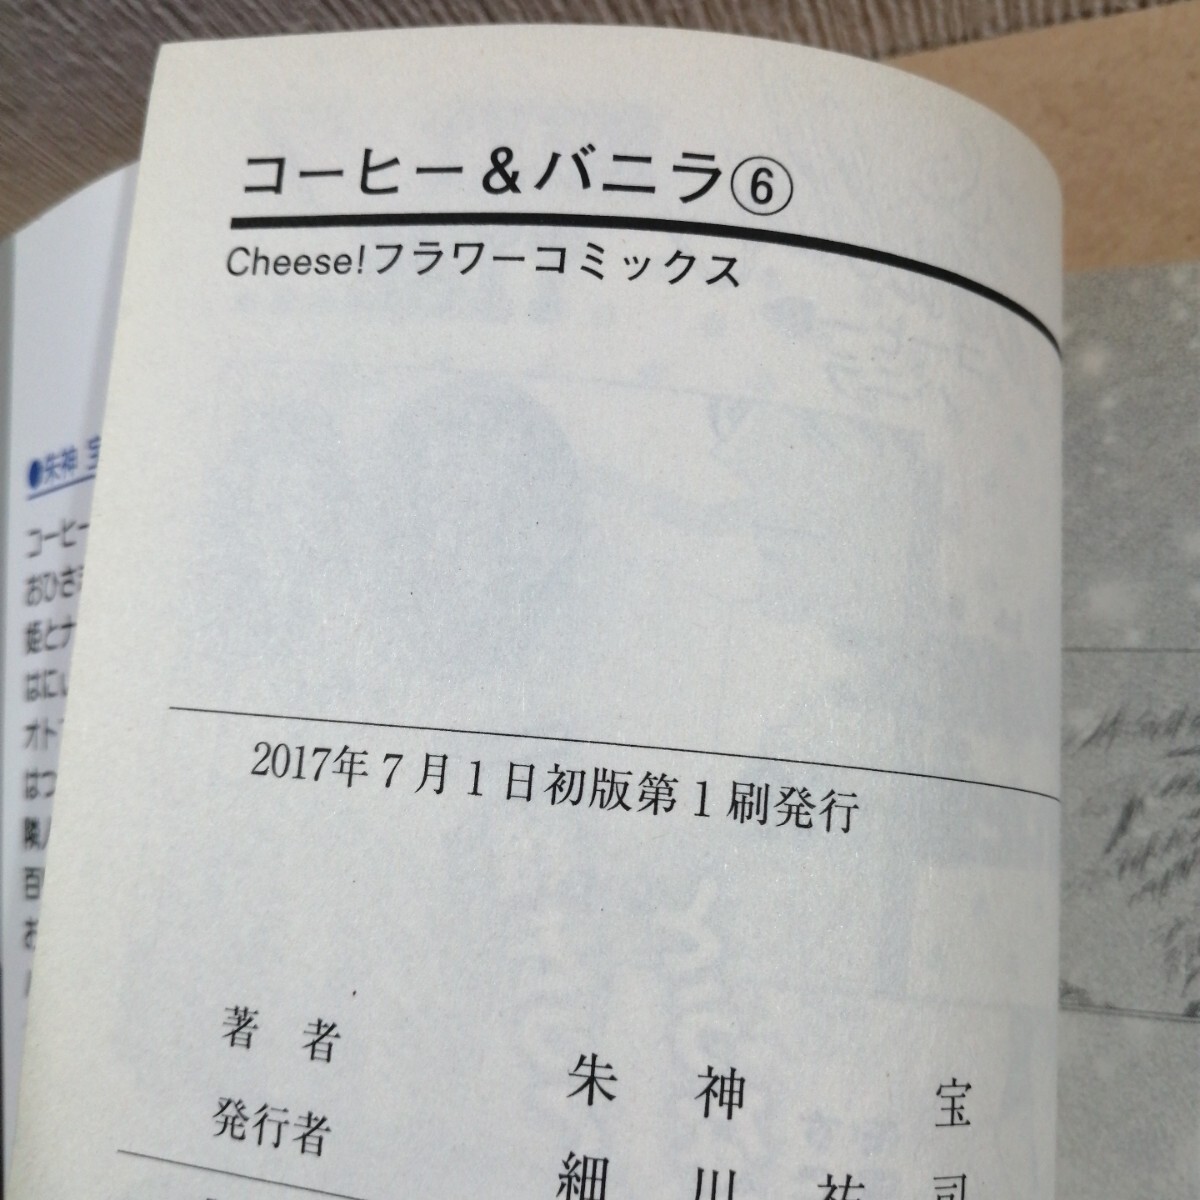 コーヒー&バニラ⑥
Cheese!フラワーコミックス
2017年7月1日初版第1刷発行
著 者 朱 神 宝
発行者 細 川 祐 司
●朱神 宝
コーヒー
おひさ
姫とナ
はに
オト
はつ
隣
百
お